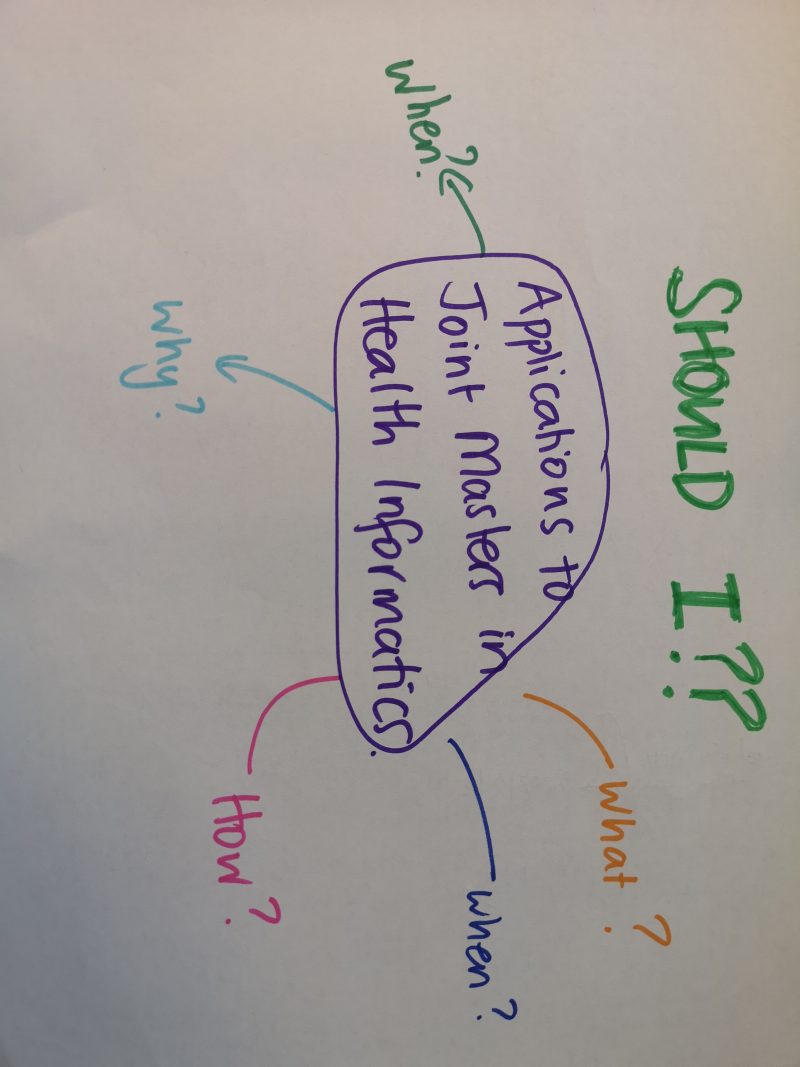 SHOULD I??
Applications to
Joint Masters in
Health Informatics.
When?
What?
when?
Why?
How?